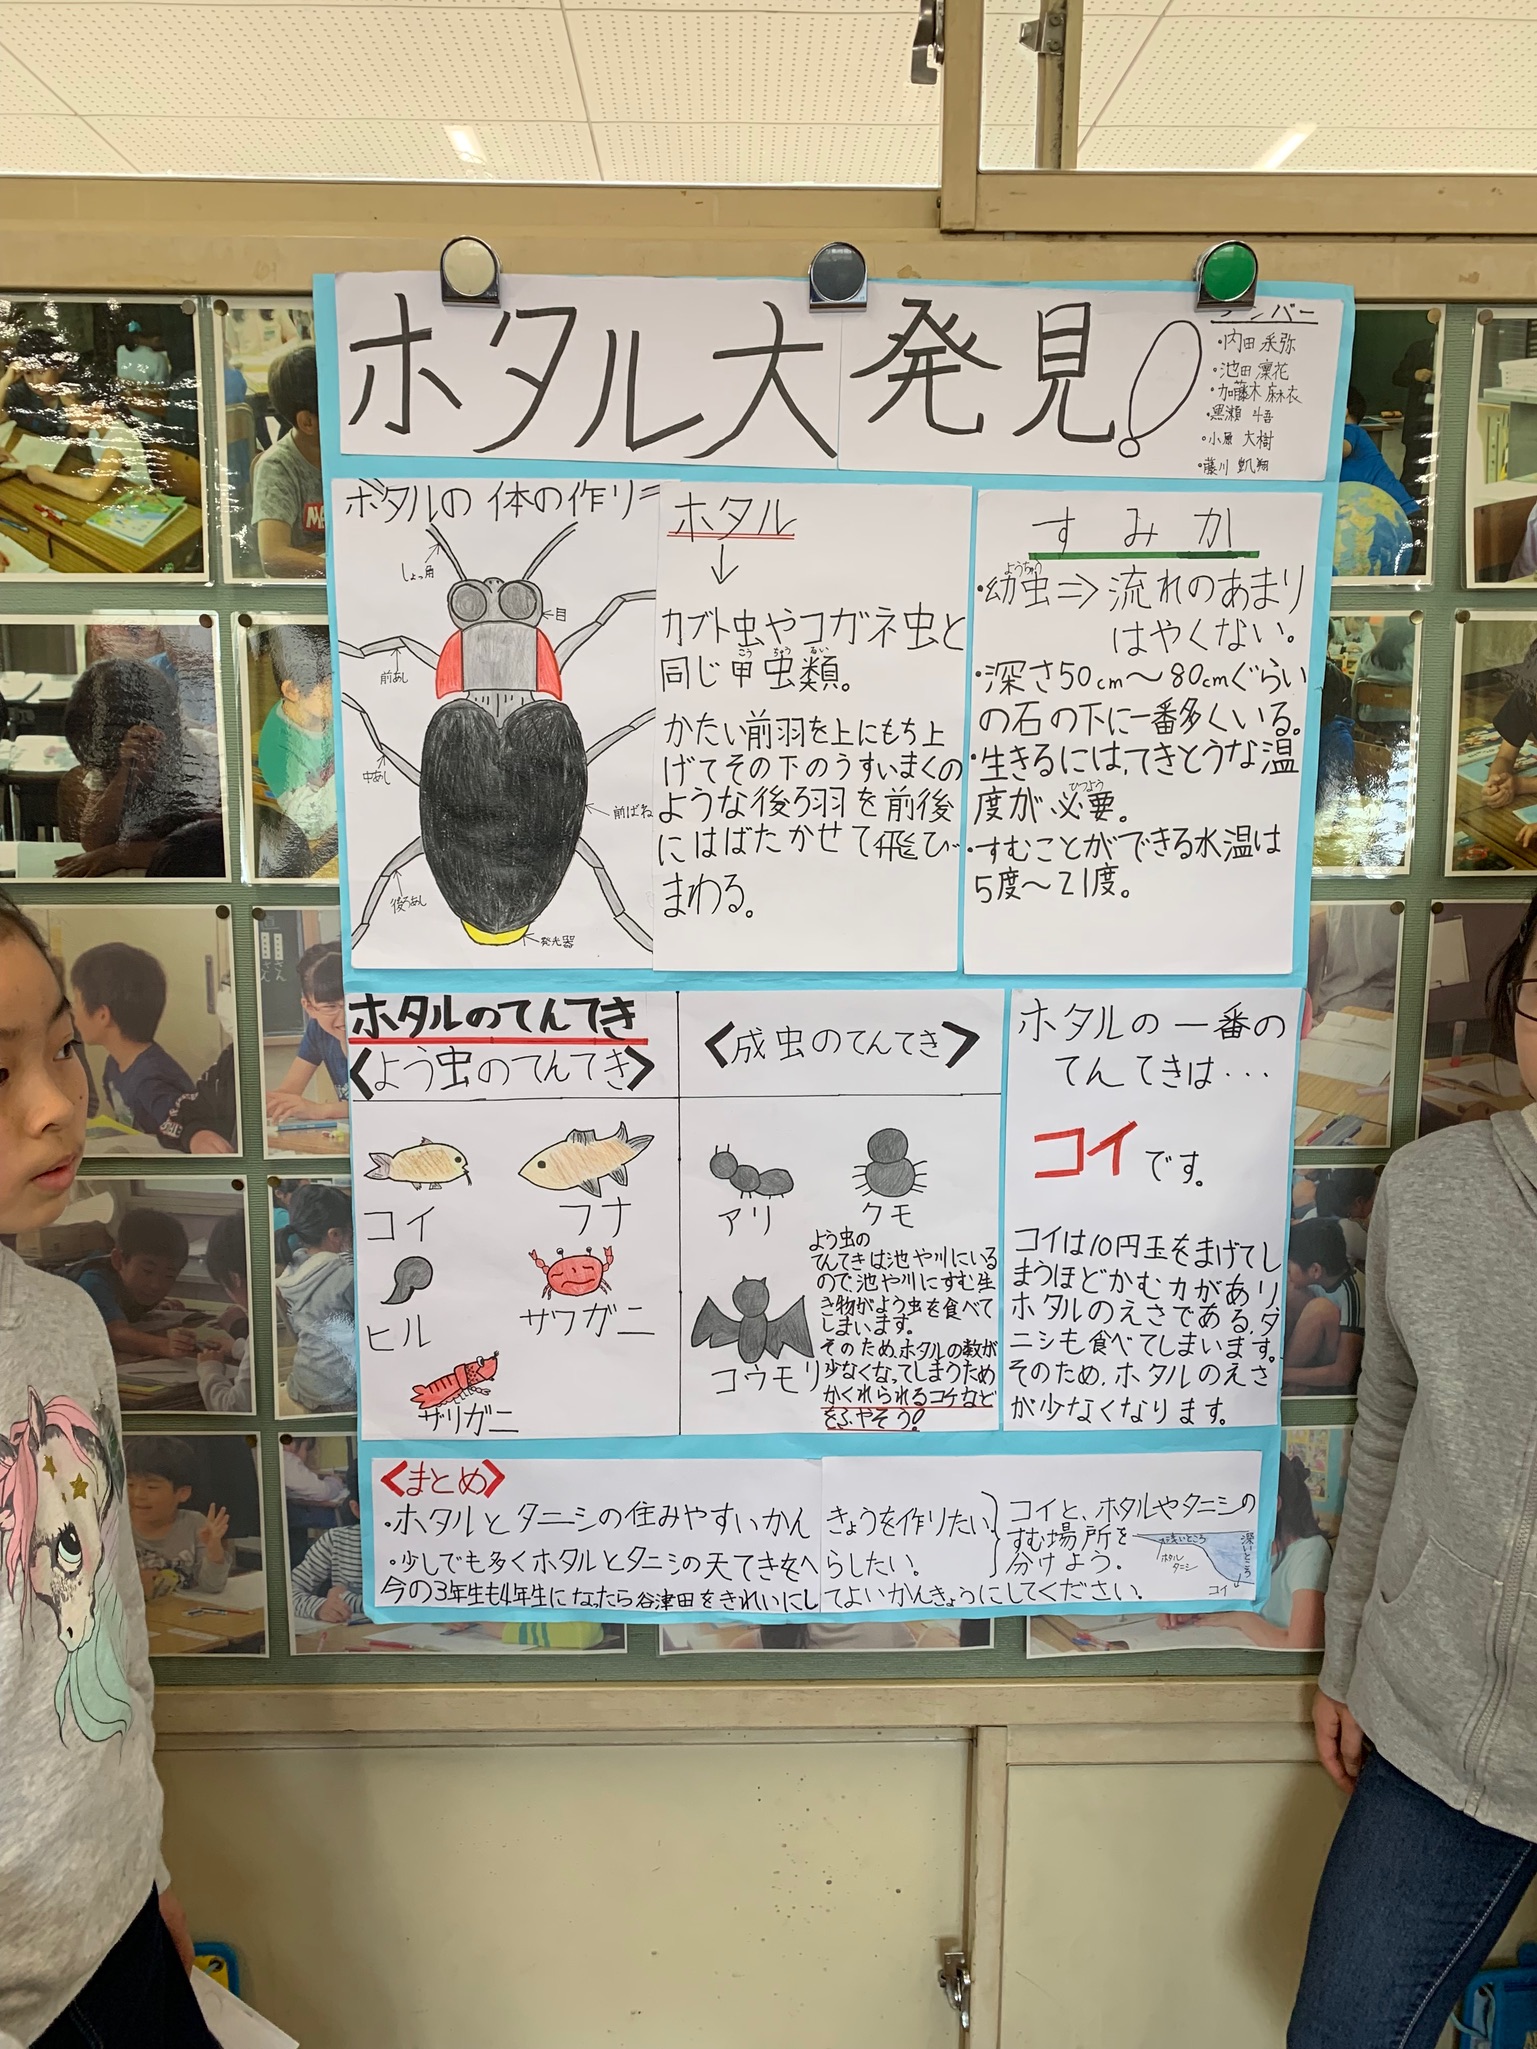 ホタル大発見!
メンバー
・池田 凛花
・加藤木 麻衣
・黒瀬 斗吾
・小原 大樹
・藤川 凱翔
ホタルの体の作り
しょっ角
目
前あし
中あし
前ばね
後ろあし
発光器
ホタル
↓
カブト虫やコガネ虫と
同じ甲虫類。
こう ちゅう るい
かたい前羽を上にもち上
げてその下のうすいまくの
ような後ろ羽を前後
にはばたかせて飛び
まわる。
すみか
ようちゅう
・幼虫⇒流れのあまり
はやくない。
・深さ50cm〜80cmぐらい
の石の下に一番多くいる。
・生きるには、てきとうな温
ひつよう
度が必要。
・すむことができる水温は
5度〜21度。
ホタルのてんてき
<よう虫のてんてき>
コイ
フナ
ヒル
サワガニ
ザリガニ
<成虫のてんてき>
アリ
クモ
コウモリ
よう虫の
てんてきは池や川にいる
ので、池や川にすむ生
き物がよう虫を食べて
しまいます。
そのため、ホタルの数が
少なくなってしまうため
かくれられるコケなど
をふやそう!
ホタルの一番の
てんてきは・・・
コイです。
コイは10円玉をまげてし
まうほどかむ力があり、
ホタルのえさである、タ
ニシも食べてしまいます。
そのため、ホタルのえさ
が少なくなります。
<まとめ>
・ホタルとタニシの住みやすいかんきょうを作りたい
・少しでも多くホタルとタニシの天てきをへらしたい。
コイと、ホタルやタニシの
すむ場所を
分けよう。
浅いところ
ホタル
タニシ
深いところ
コイ
今の3年生も4年生になったら谷津田をきれいにしてよいかんきょうにしてください。